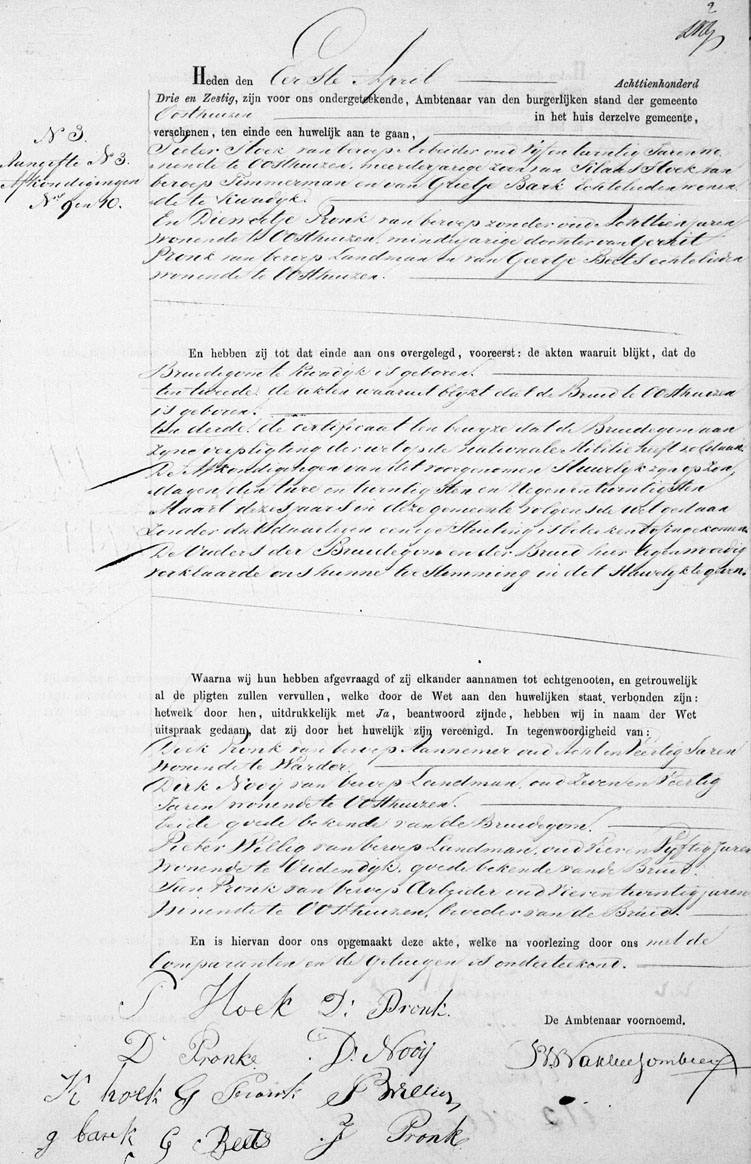 2
Heden den Eerste April Achttienhonderd
Drie en Zestig, zijn voor ons ondergeteekende, Ambtenaar van den burgerlijken stand der gemeente
Oosthuizen in het huis derzelve gemeente,
verschenen, ten einde een huwelijk aan te gaan,
N 3.
Aangifte N 3.
Afkondigingen
Nos 9 en 10.
Pieter Hoek van beroep Arbeider oud Vijfentwintig Jaren wo
nende te Oosthuizen, meerderjarige zoon van Klaas Hoek van
beroep Timmerman en van Grietje Bark echtelieden wonen
de te Kwadyk.
En Dieuwetje Pronk van beroep zonder oud Achttien jaren
wonende te Oosthuizen, minderjarige dochter van Gerrit
Pronk van beroep Landman en van Geertje Beets echtelieden
wonende te Oosthuizen.
En hebben zij tot dat einde aan ons overgelegd, vooreerst: de akten waaruit blijkt, dat de
Bruidegom te Kwadyk is geboren.
ten tweede. de akten waaruit blykt dat de Bruid te Oosthuizen
is geboren.
ten derde. de certificaat ten bewyze dat de Bruidegom aan
zyne verpligting der wet op de nationale Militie heeft voldaan.
De Afkondigingen van het voorgenomen Huwelyk zyn op Zon
dagen, den twee en twintigsten en Negenentwintigsten
Maart dezes jaars in deze gemeente volgens de wet gedaan
zonder dat daartegen eenige Stuiting is betekent of ingekomen.
De Ouders der Bruidegom en der Bruid hier tegenwoordig
verklaarde ons hunne toestemming in dit Huwelyk te geven.
Waarna wij hun hebben afgevraagd of zij elkander aannamen tot echtgenooten, en getrouwelijk
al de pligten zullen vervullen, welke door de Wet aan den huwelijken staat verbonden zijn:
hetwelk door hen, uitdrukkelijk met Ja, beantwoord zijnde, hebben wij in naam der Wet
uitspraak gedaan, dat zij door het huwelijk zijn vereenigd. In tegenwoordigheid van:
Dirk Pronk van beroep Aannemer oud Acht en Veertig Jaren
wonende te Warder.
Dirk Nooij van beroep Landman, oud Zeven en Veertig
Jaren wonende te Oosthuizen.
beide goede bekende van de Bruidegom.
Pieter Willig van beroep Landman, oud Vier en Vyftig Jaren
wonende te Oudendyk, goede bekende van de Bruid.
Jan Pronk van beroep Arbeider oud Vierentwintig jaren
wonende te Oosthuizen, broeder van de Bruid.
En is hiervan door ons opgemaakt deze akte, welke na voorlezing door ons met de
Comparanten en de getuigen is onderteekent.
P Hoek D. Pronk.
De Ambtenaar voornoemd,
D Pronk D. Nooij
K hoek G Pronk P Willig
g bark G Beets J Pronk